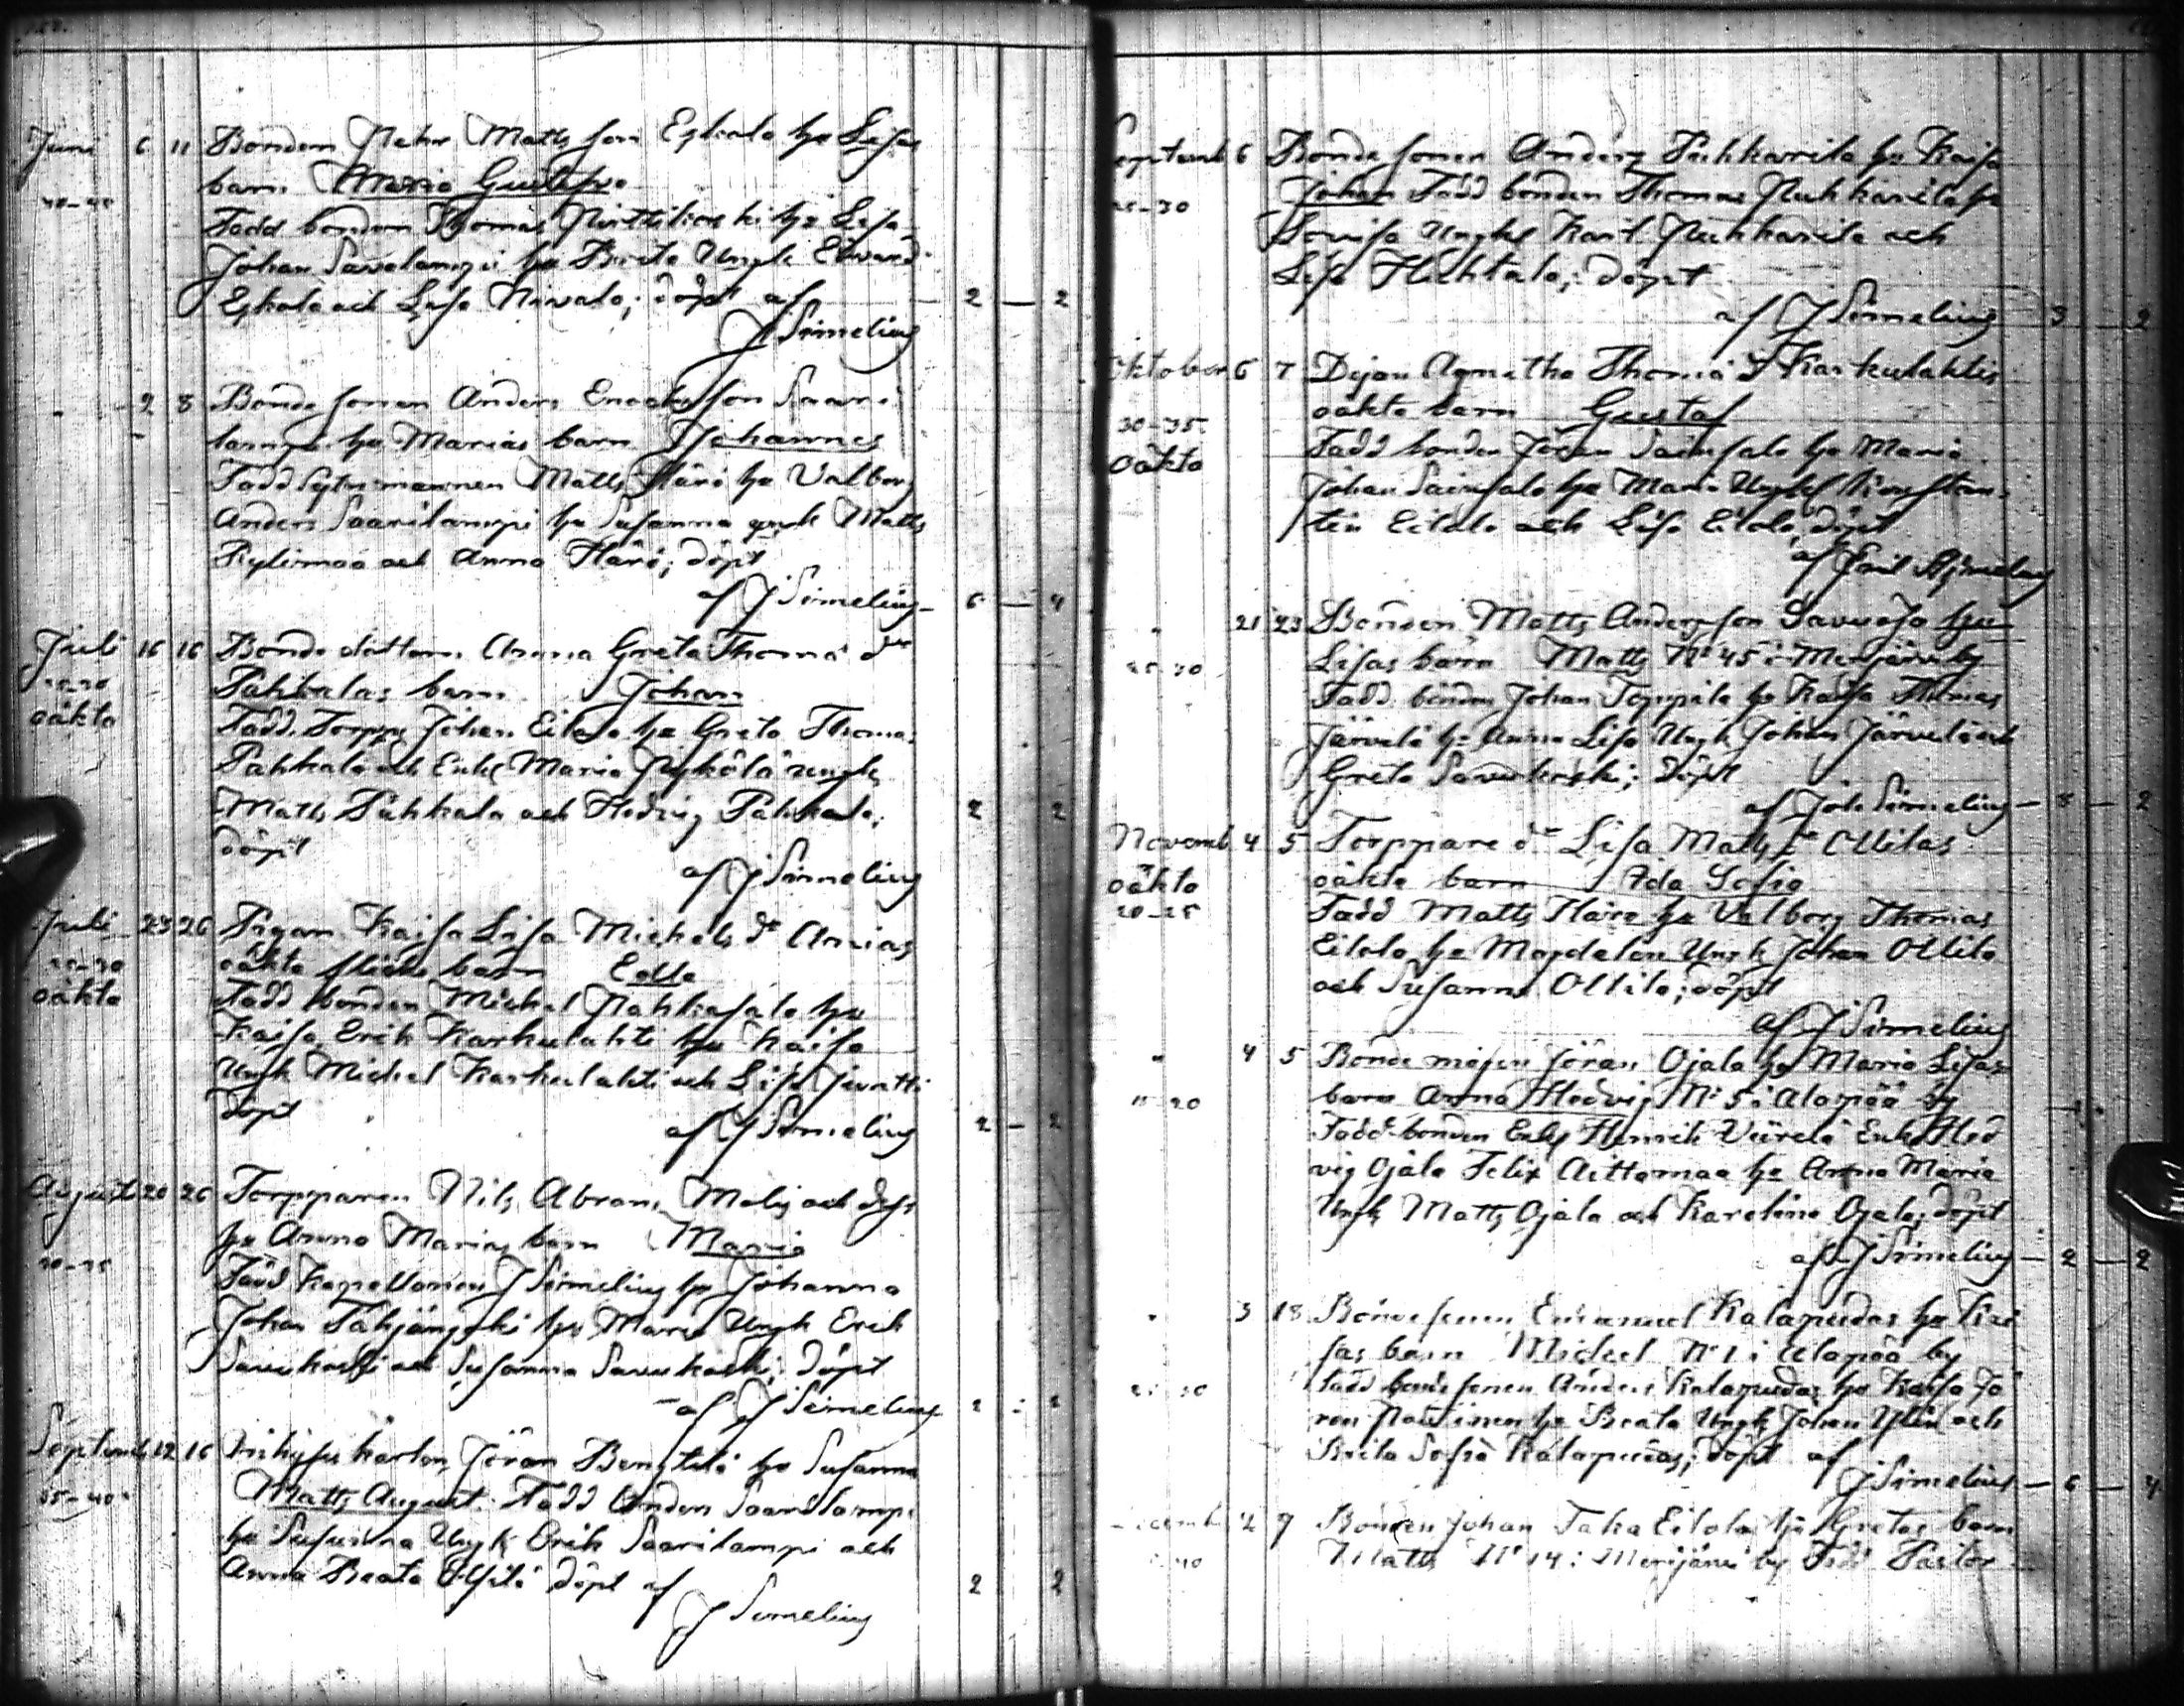 Juni 6 11 Bonden Petter Matts son Eskola hu Lisas
barn Maria Gustafva
Fadd bonden Thomas Pirttikoski hu Lisa
Johan Savelampi hu Brita Ungk Edvard
Eskola och Lisa Nivala; döpt af 2 — 2
J Simelius
" 2 8 Bonde sonen Anders Enochsson Saari
lampi hu Marias barn Johannes
Fadd Sytnimannen Matts Häri hu Valborg
Anders Saarilampi hu Susanna ungk Matts
Kylismaa och Anna Häri; döpt
af J Simelius — 6 — 4
Juli 16 16 Bonde dottern Anna Greta Thomä dr
Pahkalas barn Johan
oäkta
Fadd. Torpp Johan Eilola hu Greta Thomas
Pahkala och Enkl Maria Pyköla ungk
Matts Pahkala och Hedvig Pahkala; 2 2
döpt
af J Simelius
Juli 23 26 Pigan Kaisa Lisa Mickels dr Anias
oäkta flicke barn Edla
oäkta
Fadd bonden Mickel Pahkasalo hu
Kaisa, Erik Karkulahti hu Kaisa
Ungk Mickel Karkulahti och Lisa Juvatti
döpt
af J Simelius 2 — 2
August 20 26 Torpparen Nils Abram Malis och dess
hu Anna Marias barn Maria
Fadd Kapellanen J Simelius hu Johanna
Johan Tähjänjoki hu Maria Ungk Erik
Savukoski och Susanna Savukoski; döpt
af J Simelius 2 : 2
Septemb 12 16 Göran Bengtilä hu Susanna
35–40 Matts August. Fadd Anders Saarilampi
hu Susanna Ungk Erik Saarilampi och
Anna Beata döpt af 2 2
J Simelius
Septemb 6 Bonde sonen Anders Puhkarila hu Kaisa
25–30 Johan Fadd bonden Thomas Puhkarila hu
Lovisa Ungkl Karl Puhkarila och
Lisa Huhtala; döpt
af J Simelius — 3 — 2
Oktober 6 7 Dejan Agnetha Thomä dr Karkulahtis
oäkta barn Gustaf
30–35
oäkta
Fadd bonden Jöran Sainsalo hu Maria
Johan Sainsalo hu Maria Ungkl Konstan
tin Eilola och Lisa Eilola, döpt
af Emil Simelius
" 21 23 Bonden Matts Andersson Savuoja hu
25–30 Lisas barn Matts No 45 i Merijärvi by
Fadd. bonden Johan Toppila hu Kaisa Thomas
Järvelä hu Anna Lisa Ungk Johan Järvelä och
Greta Savukoski; döpt
af Joh Simelius — 8 — 2
Novemb 4 5 Torppare dr Lisa Matts dr Ollilas
oäkta oäkta barn Ida Sofia
20–25 Fadd Matts Häire hu Valborg Thomas
Eilola hu Magdalena Ungk Johan Ollila
och Susanna Ollila; döpt
af J Simelius
" 4 5 Bonde mågen Jöran Ojala hu Maria Lisas
15–20 barn Anna Hedvig No 5 i Alapää by
Fadd bonden Enkl Henrik Viirelä Enk Hed
vig Ojala Felix Aittamaa hu Anna Maria
Ungk Matts Ojala och Karolina Ojala; döpt
af J Simelius — 2 — 2
" 3 18 Bondesonen Emanuel Kalapudas hu Kai
sas barn Mickel No 1 i Alapää by
Fadd bonde sonen Anders Kalapudas hu Kaisa Jö
ran hu Beata Ungk Johan och
Brita Sofia Kalapudas; döpt af
J Simelius — 6 — 4
2 9 Bonden Johan Taka Eilola hu Gretas barn
Matts No 14 i Merijärvi by Fadd Pastor